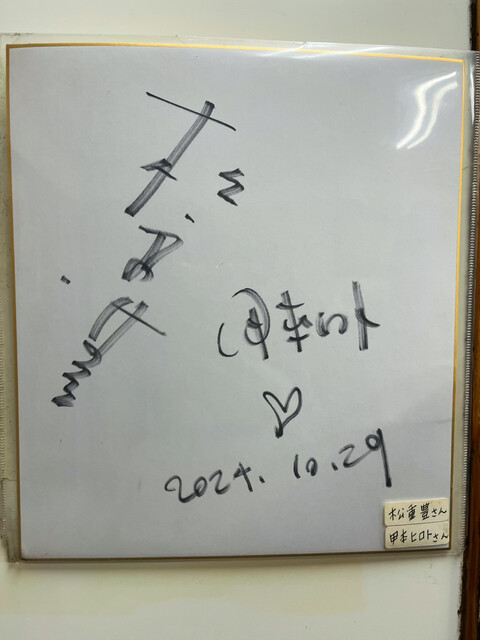 甲本ヒロト
2024.10.29
松重豊さん
甲本ヒロトさん